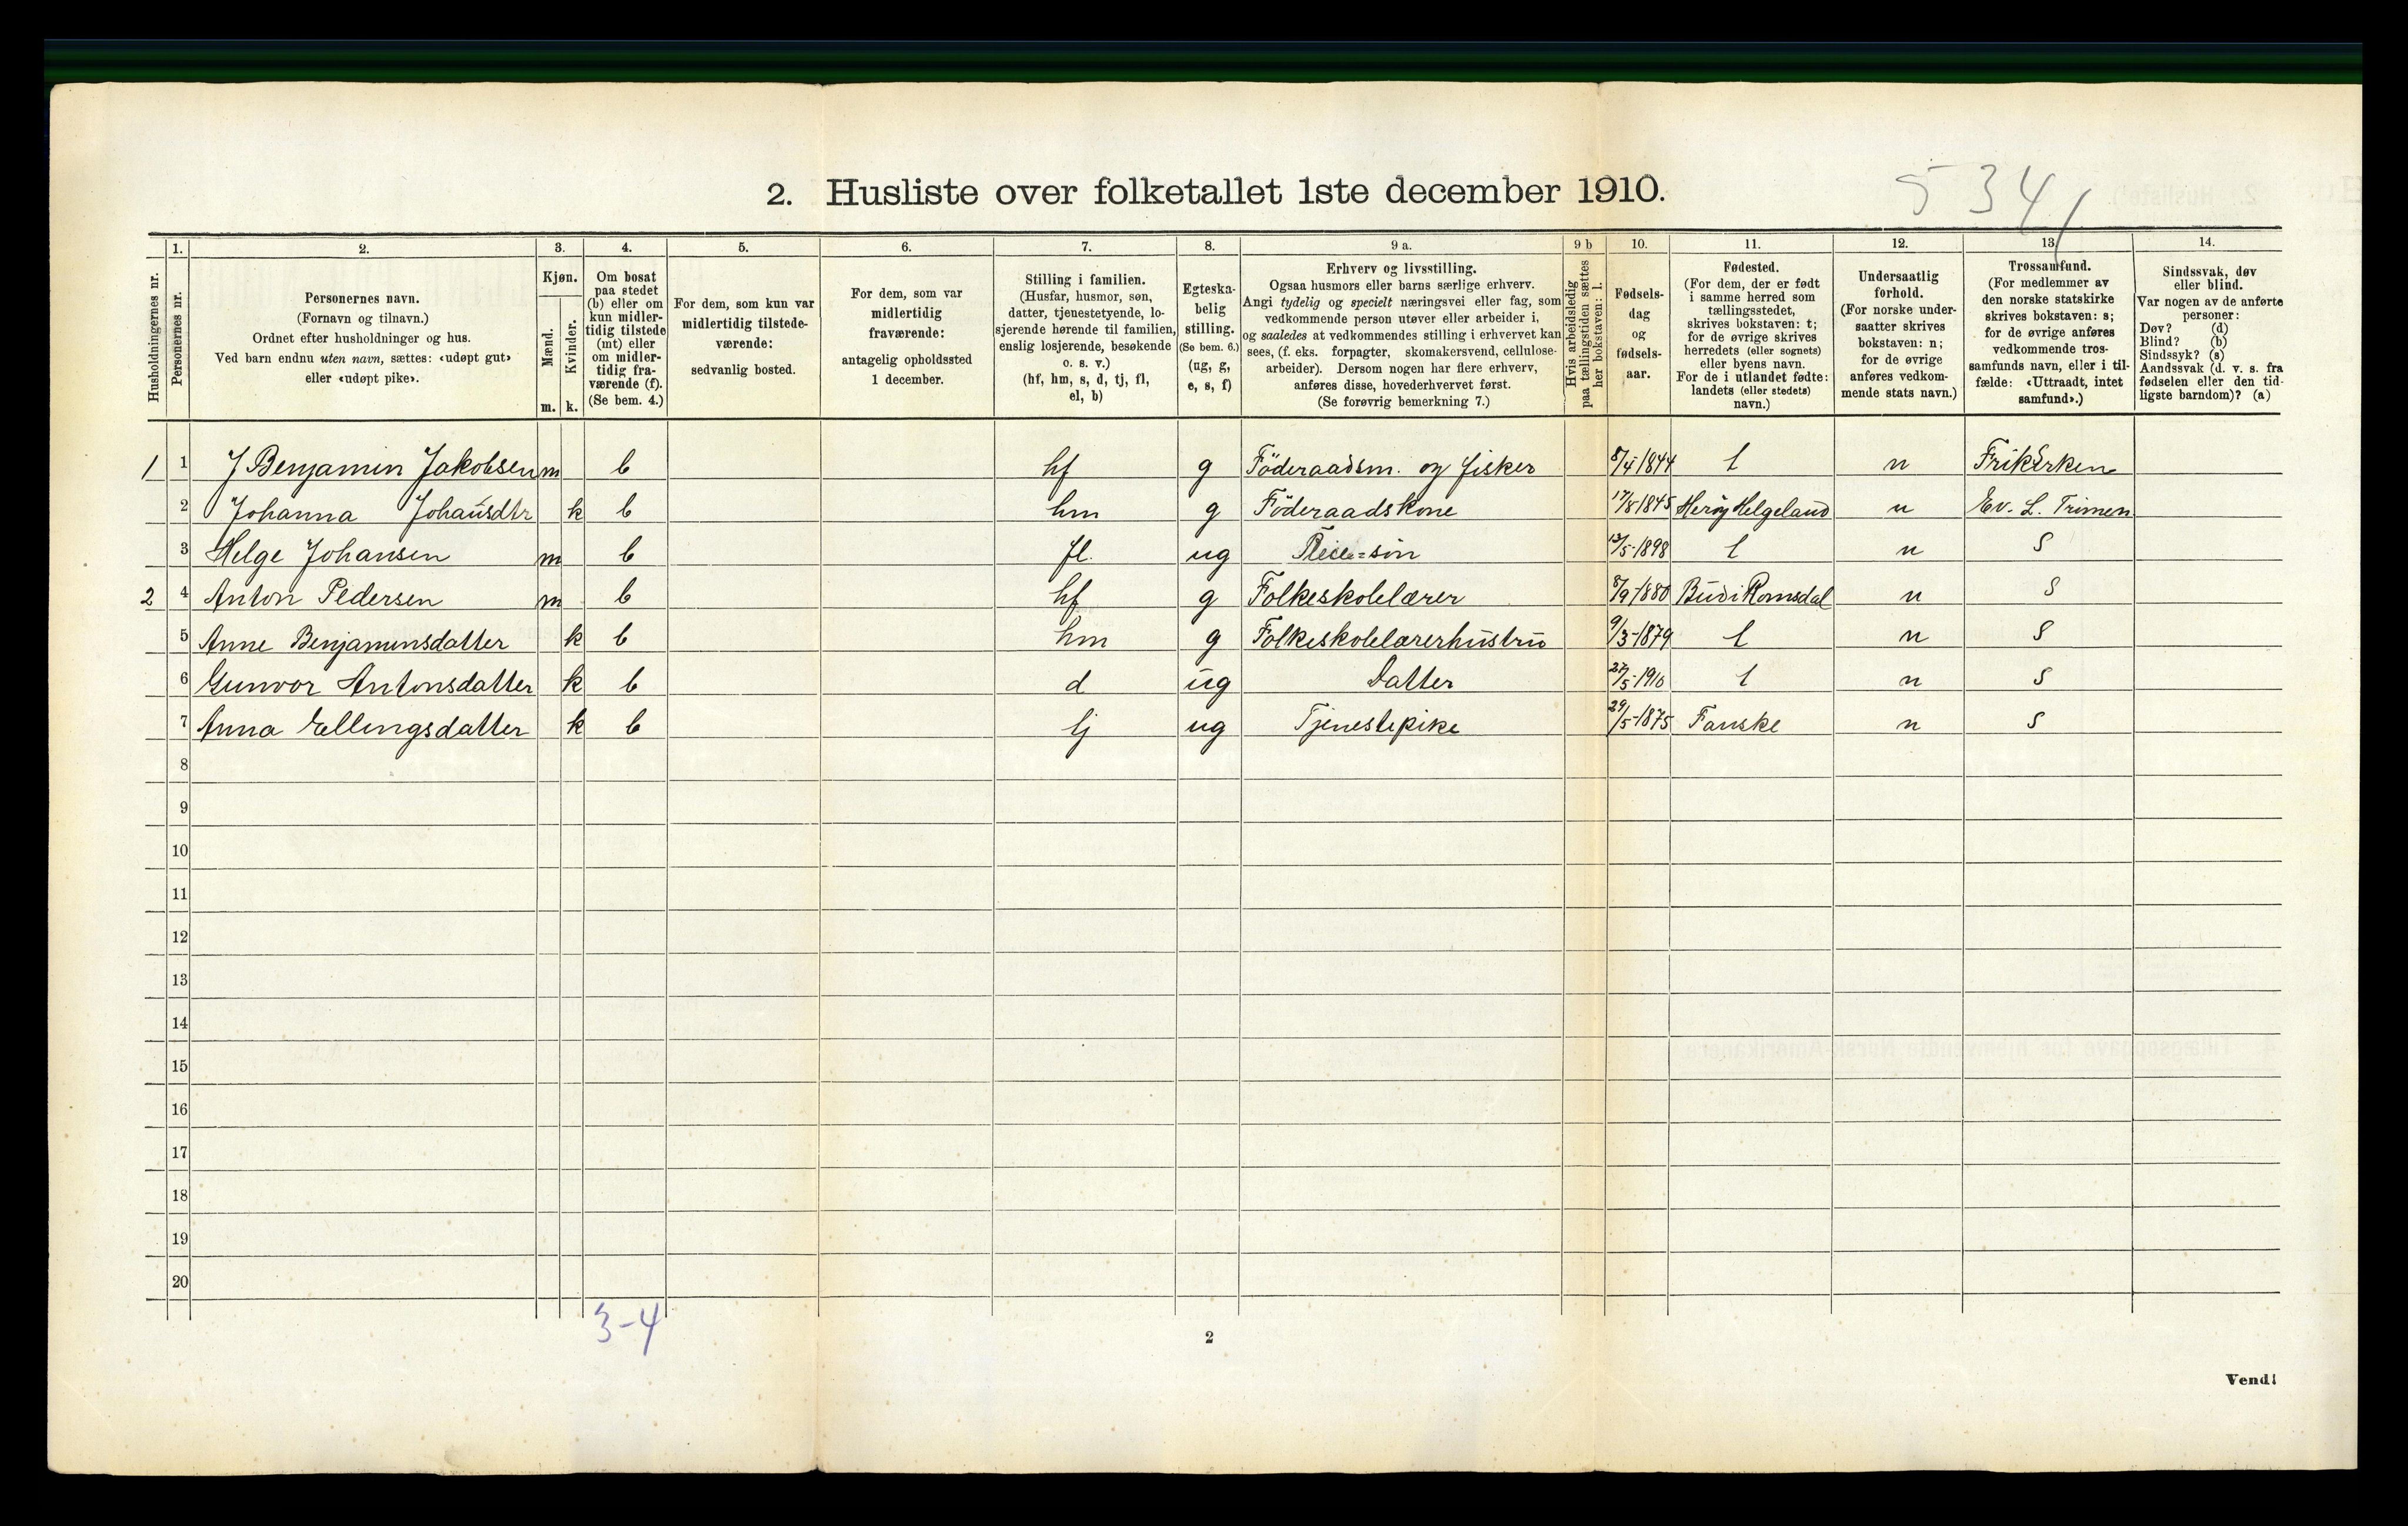 2. Husliste over folketallet 1ste december 1910.
5 34
Husholdningernes nr.
1. Personernes nr.
2. Personernes navn.
(Fornavn og tilnavn.)
Ordnet efter husholdninger og hus.
Ved barn endnu uten navn, sættes: «udøpt gut»
eller «udøpt pike».
3. Kjøn.
Mænd. Kvinder.
m. k.
4. Om bosat
paa stedet
(b) eller om
kun midler-
tidig tilstede
(mt) eller
om midler-
tidig fra-
værende (f).
(Se bem. 4.)
5. For dem, som kun var
midlertidig tilstede-
værende:
sedvanlig bosted.
6. For dem, som var
midlertidig
fraværende:
antagelig opholdssted
1 december.
7. Stilling i familien.
(Husfar, husmor, søn,
datter, tjenestetyende, lo-
sjerende hørende til familien,
enslig losjerende, besøkende
o. s. v.)
(hf, hm, s, d, tj, fl,
el, b)
8. Egteska-
belig
stilling.
(Se bem. 6.)
(ug, g,
e, s, f)
9 a. Erhverv og livsstilling.
Ogsaa husmors eller barns særlige erhverv.
Angi tydelig og specielt næringsvei eller fag, som
vedkommende person utøver eller arbeider i,
og saaledes at vedkommendes stilling i erhvervet kan
sees, (f. eks. forpagter, skomakersvend, cellulose-
arbeider). Dersom nogen har flere erhverv,
anføres disse, hovederhvervet først.
(Se forøvrig bemerkning 7.)
9 b Hvis arbeidsledig
paa tællingstiden sættes
her bokstaven: l.
10. Fødsels-
dag
og
fødsels-
aar.
11. Fødested.
(For dem, der er født
i samme herred som
tællingsstedet,
skrives bokstaven: t;
for de øvrige skrives
herredets (eller sognets)
eller byens navn.
For de i utlandet fødte:
landets (eller stedets)
navn.)
12. Undersaatlig
forhold.
(For norske under-
saatter skrives
bokstaven: n;
for de øvrige
anføres vedkom-
mende stats navn.)
13. Trossamfund.
(For medlemmer av
den norske statskirke
skrives bokstaven: s;
for de øvrige anføres
vedkommende tros-
samfunds navn, eller i til-
fælde: «Uttraadt, intet
samfund».)
14. Sindssvak, døv
eller blind.
Var nogen av de anførte
personer:
Døv? (d)
Blind? (b)
Sindssyk? (s)
Aandssvak (d. v. s. fra
fødselen eller den tid-
ligste barndom)? (a)
1 1 J Benjamin Jakobsen m b hf g Föderaadsm. og fisker 8/4 1844 t n Frikirken
2 Johanna Johansdtr k b hm g Föderaadskone 17/8 1845 Heröy Helgeland n Ev. L.
3 Helge Johansen m b fl. ug sön 13/5-1898 t n S
2 4 Anton Pedersen m b hf g Folkeskolelærer 8/9 1880 Bud i Romsdal n S
5 Anne Benjaminsdatter k b hm g Folkeskolelærerhustru 9/3-1879 t n S
6 Gunvor Antonsdatter k b d ug Datter 27/5-1910 t n S
7 Anna Ellingsdatter k b tj ug Tjenestepike 29/5-1875 Fauske n S
8
9
10
11
12
13
14
15
16
17
18
19
20
3-4
2
Vend!